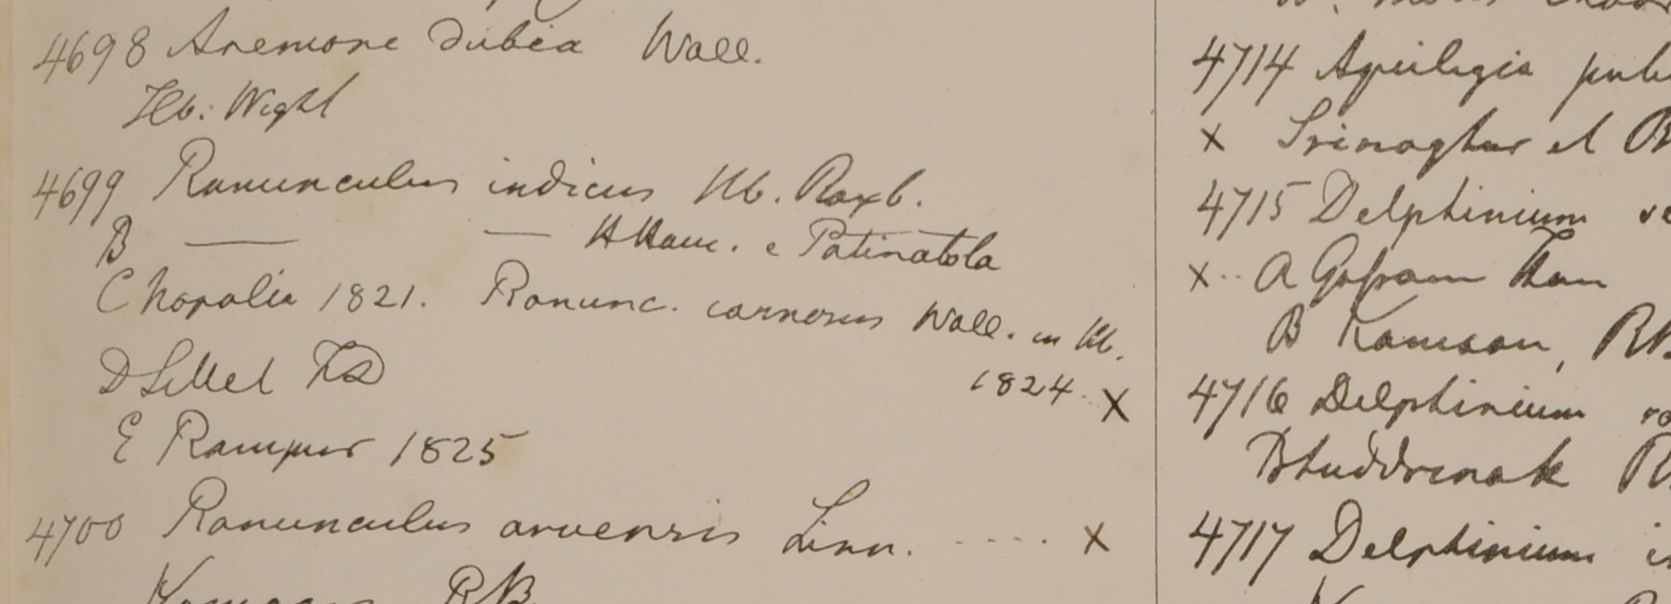 4698 Anemone dubia Wall.
Hb. Wight
4699 Ranunculus indicus Hb. Roxb.
B —— — HHam. e Patinatola
C Nopalia 1821. Ranunc. carnosus Wall. in Hb.
1824 X
D Sillet FD
E Rampur 1825
4700 Ranunculus arvensis Linn. ..... X
Kamaon RB
4714 Aquilegia pub
X Srinaghur et B
4715 Delphinium
X .. A Gossam Than
B Kamaon, RB
4716 Delphinium
Bhuddrinak R
4717 Delphinium i